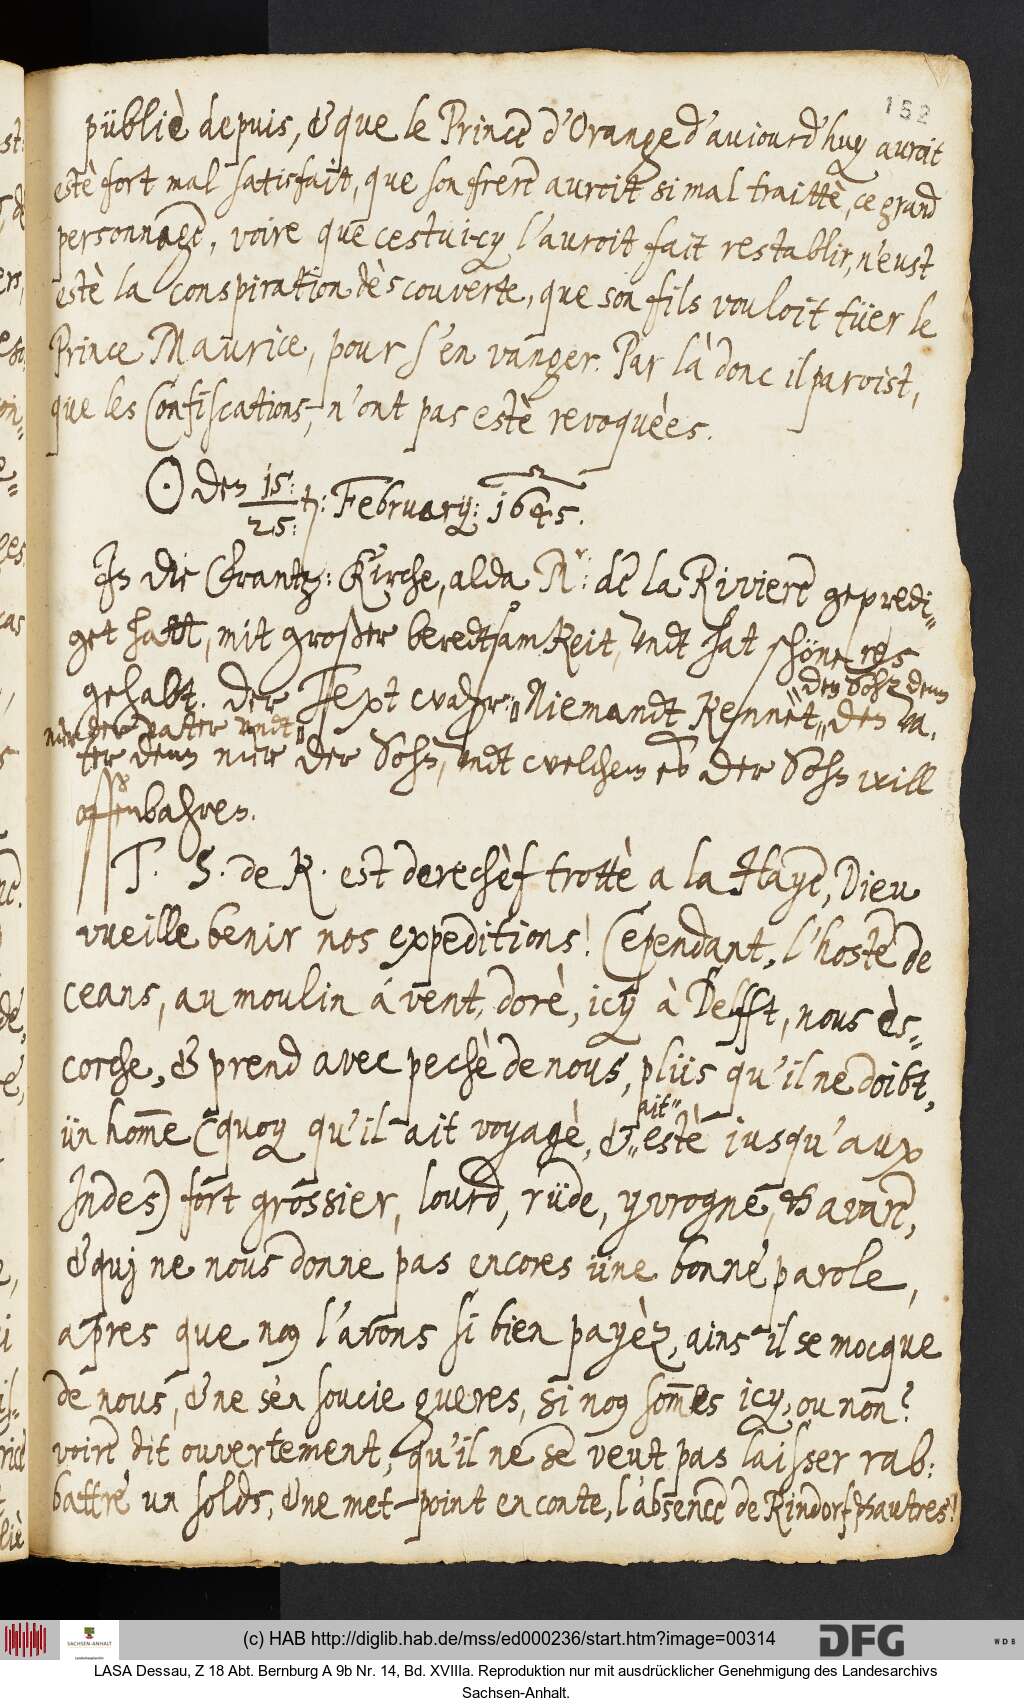 152
püblie depuis, & que le Prince d'Orange d'aujourd'huy auroit
estè fort mal satisfait, que son frere auroit si mal traittè, ce grand
personnage, voire que cestui-cy l'auroit fait restablir, n'eust
estè la conspiration dèscouverte, que son fils vouloit tüer le
Prince Maurice, pour s'en vanger. Par là donc il paroist,
que les Confiscations, n'ont pas estè revoquèes.
☉ den 15: / 25: February: 1645.
In die Frantz: Kirche, alda Mr: de la Riviere gepredi„
get hatt, mit großer beredtsamkeit, undt hat schöne res
gehabt. Der Text war: Niemandt kennet„ den Va„
„den Sohn denn
nur der vatter undt
ter denn nur der Sohn, undt welchem es der Sohn will
offenbahren.
T. S. de R. est derechèf trottè a la Haye, Dieu
vueille benir nos expeditions! Cependant, l'hoste de
ceans, au moulin á vent, dorè, icy à Delfft, nous ès„
corche, & prend avec pechè de nous, plüs qu'il ne doibt,
ün home (quoy qu'il ait voyagè, &„ ait" estè jusqu'aux
Indes) fort grossier, lourd, rüde, yvrogne, & avare,
& quj ne nous donne pas encores üne bonne parole,
apres que nous l'avons si bien payèz, ains il se mocque
de nous, & ne s'en soucie gueres, si nous somes icy, ou non?
voire dit ouvertement, qu'il ne se veut pas laisser rab:
battre un solds, & ne met point en conte, l'absence de Rindorf & autres!
(c) HAB http://diglib.hab.de/mss/ed000236/start.htm?image=00314
SACHSEN-ANHALT
DFG
WDB
LASA Dessau, Z 18 Abt. Bernburg A 9b Nr. 14, Bd. XVIIIa. Reproduktion nur mit ausdrücklicher Genehmigung des Landesarchivs
Sachsen-Anhalt.